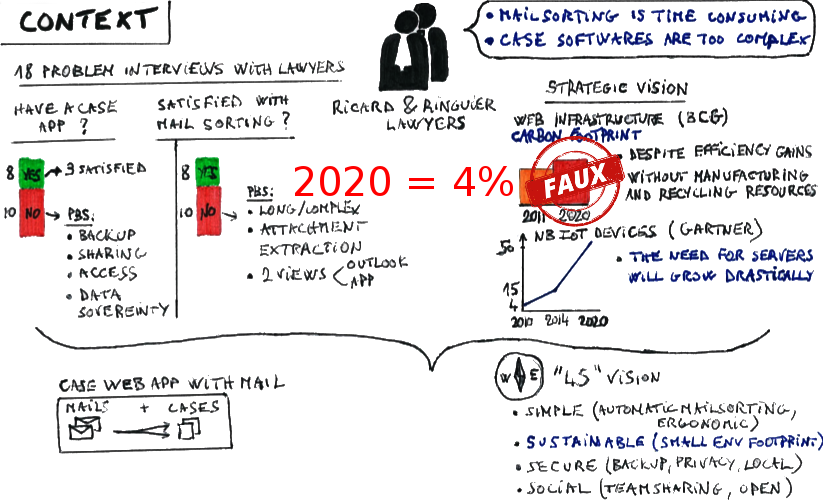 CONTEXT
• MAILSORTING IS TIME CONSUMING
• CASE SOFTWARES ARE TOO COMPLEX
18 PROBLEM INTERVIEWS WITH LAWYERS
HAVE A CASE
APP ?
8 YES → 3 SATISFIED
10 NO → PBS:
• BACKUP
• SHARING
• ACCESS
• DATA
SOVEREINTY
SATISFIED WITH
MAIL SORTING ?
8 YES
10 NO → PBS:
• LONG/COMPLEX
• ATTACHMENT
EXTRACTION
• 2 VIEWS < OUTLOOK
APP
RICARD & RINGUIER
LAWYERS
STRATEGIC VISION
WEB INFRASTRUCTURE (BCG)
CARBON FOOTPRINT
2020 = 4%
FAUX
2011 2020
• DESPITE EFFICIENCY GAINS
• WITHOUT MANUFACTURING
AND RECYCLING RESOURCES
NB IOT DEVICES (GARTNER)
50
15
4
2010 2014 2020
• THE NEED FOR SERVERS
WILL GROW DRASTICALLY
CASE WEB APP WITH MAIL
MAILS + CASES
W E "4S" VISION
• SIMPLE (AUTOMATIC MAILSORTING,
ERGONOMIC)
• SUSTAINABLE (SMALL ENV FOOTPRINT)
• SECURE (BACKUP, PRIVACY, LOCAL)
• SOCIAL (TEAMSHARING, OPEN)